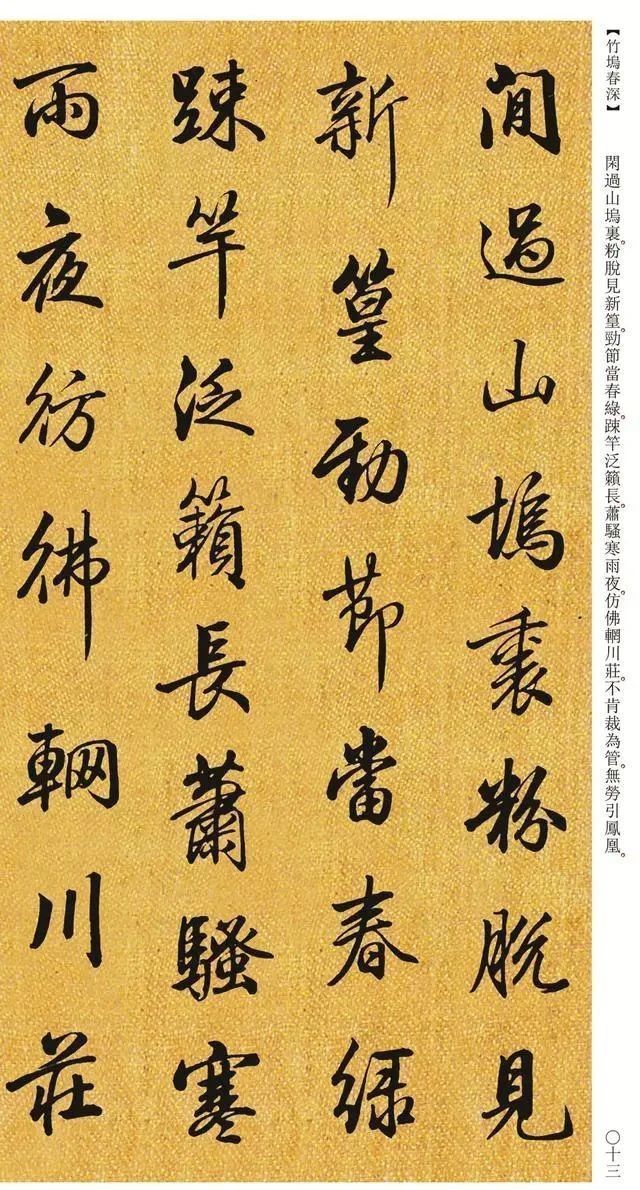 【竹塢春深】 閑過山塢裏。粉脫見新篁。勁節當春綠。踈竿泛籟長。蕭騷寒雨夜。仿佛輞川莊。不肯裁為管。無勞引鳳凰。
〇十三
閒過山塢裏粉脫見
新篁勁節當春綠
踈竿泛籟長蕭騷寒
雨夜彷彿輞川莊